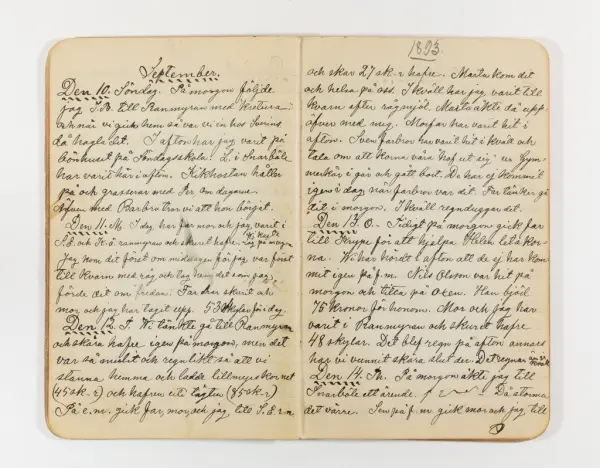 September.
Den 10. Söndag. På morgon följde
jag S.B. till Ranmyran med kreturen
och när vi gick hem så var vi in hos Svens
då hagla det. I afton har jag varit på
bönhuset på Söndagsskola. L. i Snarböle
har varit här i afton. Kikhostan håller
på och grasserar med Per om dagarna.
Äfven med Barbro tror vi att hon börjat.
Den 11. M. I dag har far mor och jag varit i
S.E. och K. i ranmyran och skurit hafre. på morgon
Jag kom dit först om middagen för jag var först
till Kvarn med råg och tog hem det som jag
förde dit om fredan. Far har skurit och
mor och jag har tagit upp. 53 skylar för i dag.
Den 12. T. Vi tänkte gå till Ranmyran
och skära hafre igen på morgon, men det
var så mulit och regnlikt så att vi
stanna hemma och ladde lillmyrskornet
(45 sk. r) och hafren uti täjten (85 sk. r)
På e.m. gick far, mor och jag till S.E. r n
1893.
och skar 27 sk. r hafre. Marta kom dit
och helsa på oss. I kväll har jag varit till
kvarn efter rågmjöl. Marta åkte då upp-
öfver med mig. Morfar har varit hit i
afton. Sven farbror har varit hit i kväll och
tala om att korna våra haf ut sig ur Gym-
merkär i går och gått bort. De har ej kommit
igen i dag när farbror var dit. Per tänker gå
dit i morgon. I kväll regnduggar det.
Den 13. O. Tidigt på morgon gick far
till Krype för att hjelpa Helen leta kor-
na. Vi har hördt i afton att de ej har kom-
mit igen på f.m. Nils Olsson var hit på
morgon och titta på Oxen. Han bjöd
75 kronor för honom. Mor och jag har
varit i Ranmyran och skurit hafre
48 skylar. Det blef regn på afton annars
har vi vunnit skära slut der. Det regnar än i kväll
Den 14. Th. På morgon åkte jag till
Snarböle ett ärende. Då storma
det värre. Sen på f.m. gick mor och jag till